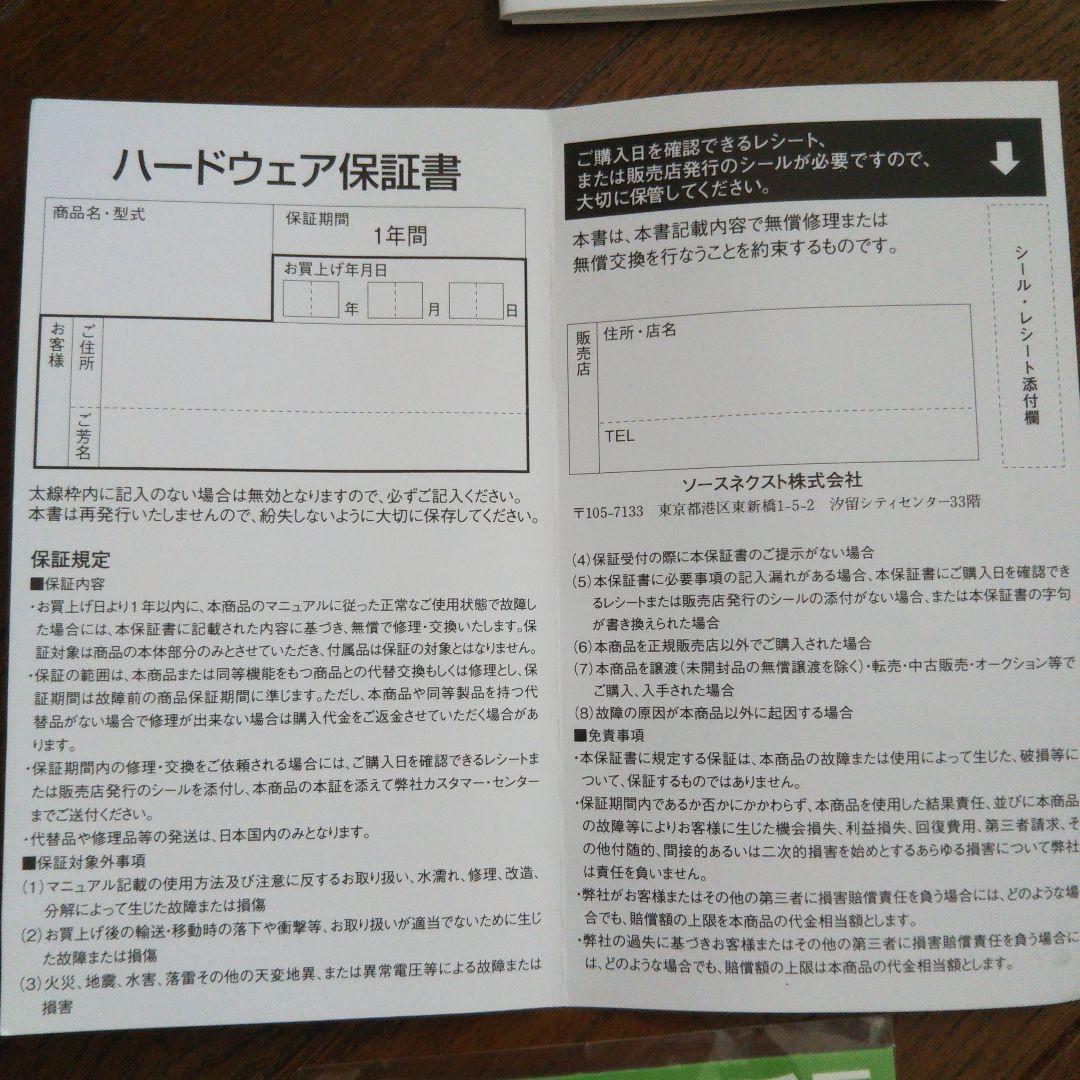 ハードウェア保証書
商品名・型式
保証期間
1年間
お買上げ年月日
年 月 日
お客様
ご住所
ご芳名
太線枠内に記入のない場合は無効となりますので、必ずご記入ください。
本書は再発行いたしませんので、紛失しないように大切に保存してください。
保証規定
■保証内容
・お買上げ日より1年以内に、本商品のマニュアルに従った正常なご使用状態で故障し
た場合には、本保証書に記載された内容に基づき、無償で修理・交換いたします。保
証対象は商品の本体部分のみとさせていただき、付属品は保証の対象とはなりません。
・保証の範囲は、本商品または同等機能をもつ商品との代替交換もしくは修理とし、保
証期間は故障前の商品保証期間に準じます。ただし、本商品や同等製品を持つ代
替品がない場合で修理が出来ない場合は購入代金をご返金させていただく場合があ
ります。
・保証期間内の修理・交換をご依頼される場合には、ご購入日を確認できるレシートま
たは販売店発行のシールを添付し、本商品の本証を添えて弊社カスタマー・センター
までご送付ください。
・代替品や修理品等の発送は、日本国内のみとなります。
■保証対象外事項
(1)マニュアル記載の使用方法及び注意に反するお取り扱い、水濡れ、修理、改造、
分解によって生じた故障または損傷
(2)お買上げ後の輸送・移動時の落下や衝撃等、お取り扱いが適当でないために生じ
た故障または損傷
(3)火災、地震、水害、落雷その他の天変地異、または異常電圧等による故障または
損害
ご購入日を確認できるレシート、
または販売店発行のシールが必要ですので、
大切に保管してください。
本書は、本書記載内容で無償修理または
無償交換を行なうことを約束するものです。
シール・レシート添付欄
販売店
住所・店名
TEL
ソースネクスト株式会社
〒105-7133 東京都港区東新橋1-5-2 汐留シティセンター33階
(4)保証受付の際に本保証書のご提示がない場合
(5)本保証書に必要事項の記入漏れがある場合、本保証書にご購入日を確認でき
るレシートまたは販売店発行のシールの添付がない場合、または本保証書の字句
が書き換えられた場合
(6)本商品を正規販売店以外でご購入された場合
(7)本商品を譲渡(未開封品の無償譲渡を除く)・転売・中古販売・オークション等で
ご購入、入手された場合
(8)故障の原因が本商品以外に起因する場合
■免責事項
・本保証書に規定する保証は、本商品の故障または使用によって生じた、破損等に
ついて、保証するものではありません。
・保証期間内であるか否かにかかわらず、本商品を使用した結果責任、並びに本商品
の故障等によりお客様に生じた機会損失、利益損失、回復費用、第三者請求、そ
の他付随的、間接的あるいは二次的損害を始めとするあらゆる損害について弊社
は責任を負いません。
・弊社がお客様またはその他の第三者に損害賠償責任を負う場合には、どのような場
合でも、賠償額の上限を本商品の代金相当額とします。
・弊社の過失に基づきお客様またはその他の第三者に損害賠償責任を負う場合に
は、どのような場合でも、賠償額の上限は本商品の代金相当額とします。